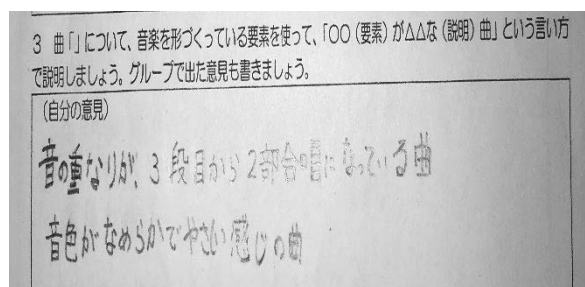 3 曲「」について、音楽を形づくっている要素を使って、「〇〇(要素)が△△な(説明)曲」という言い方
で説明しましょう。グループで出た意見も書きましょう。
(自分の意見)
音の重なりが、3段目から2部合唱になっている曲
音色がなめらかでやさしい感じの曲